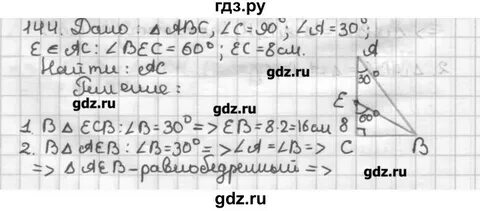 144. Дано: △ ABC, ∠C = 90°, ∠A = 30°,
E ∈ AC: ∠BEC = 60°; EC = 8 см.
Найти: AC
Решение:
1. В △ ECB: ∠B = 30° => EB = 8·2 = 16 см
2. В △ AEB: ∠B = 30° => ∠A = ∠B =>
=> △ AEB - равнобедренный =>
A
30°
E
60°
8
C
B
gdz.ru
gdz.ru
gdz.ru
gdz.ru
gdz.ru
gdz.ru
gdz.ru